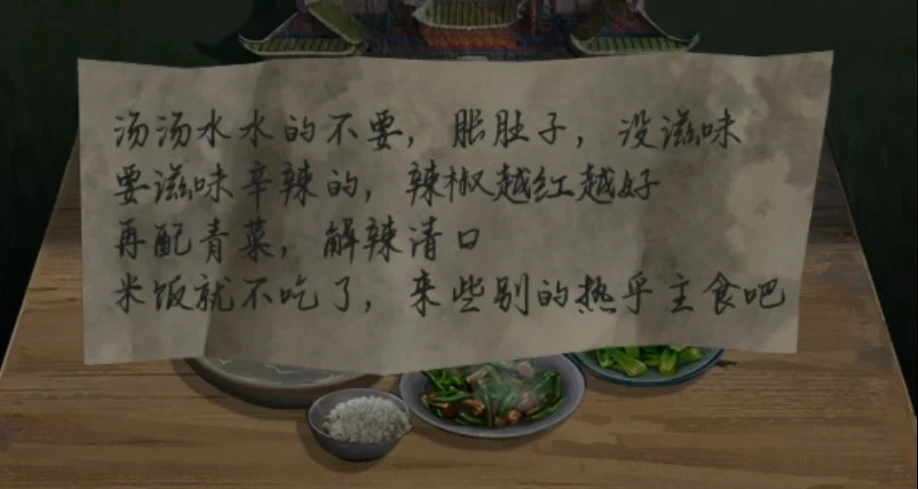 汤汤水水的不要，胀肚子，没滋味
要滋味辛辣的，辣椒越红越好
再配青菜，解辣清口
米饭就不吃了，来些别的热乎主食吧